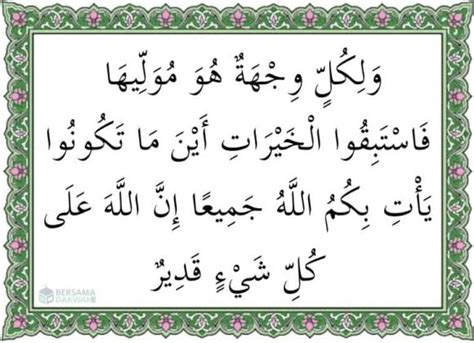 وَلِكُلٍّ وِجْهَةٌ هُوَ مُوَلِّيهَا
فَاسْتَبِقُوا الْخَيْرَاتِ أَيْنَ مَا تَكُونُوا
يَأْتِ بِكُمُ اللَّهُ جَمِيعًا إِنَّ اللَّهَ عَلَى
كُلِّ شَيْءٍ قَدِيرٌ
BERSAMA
DAKWAH